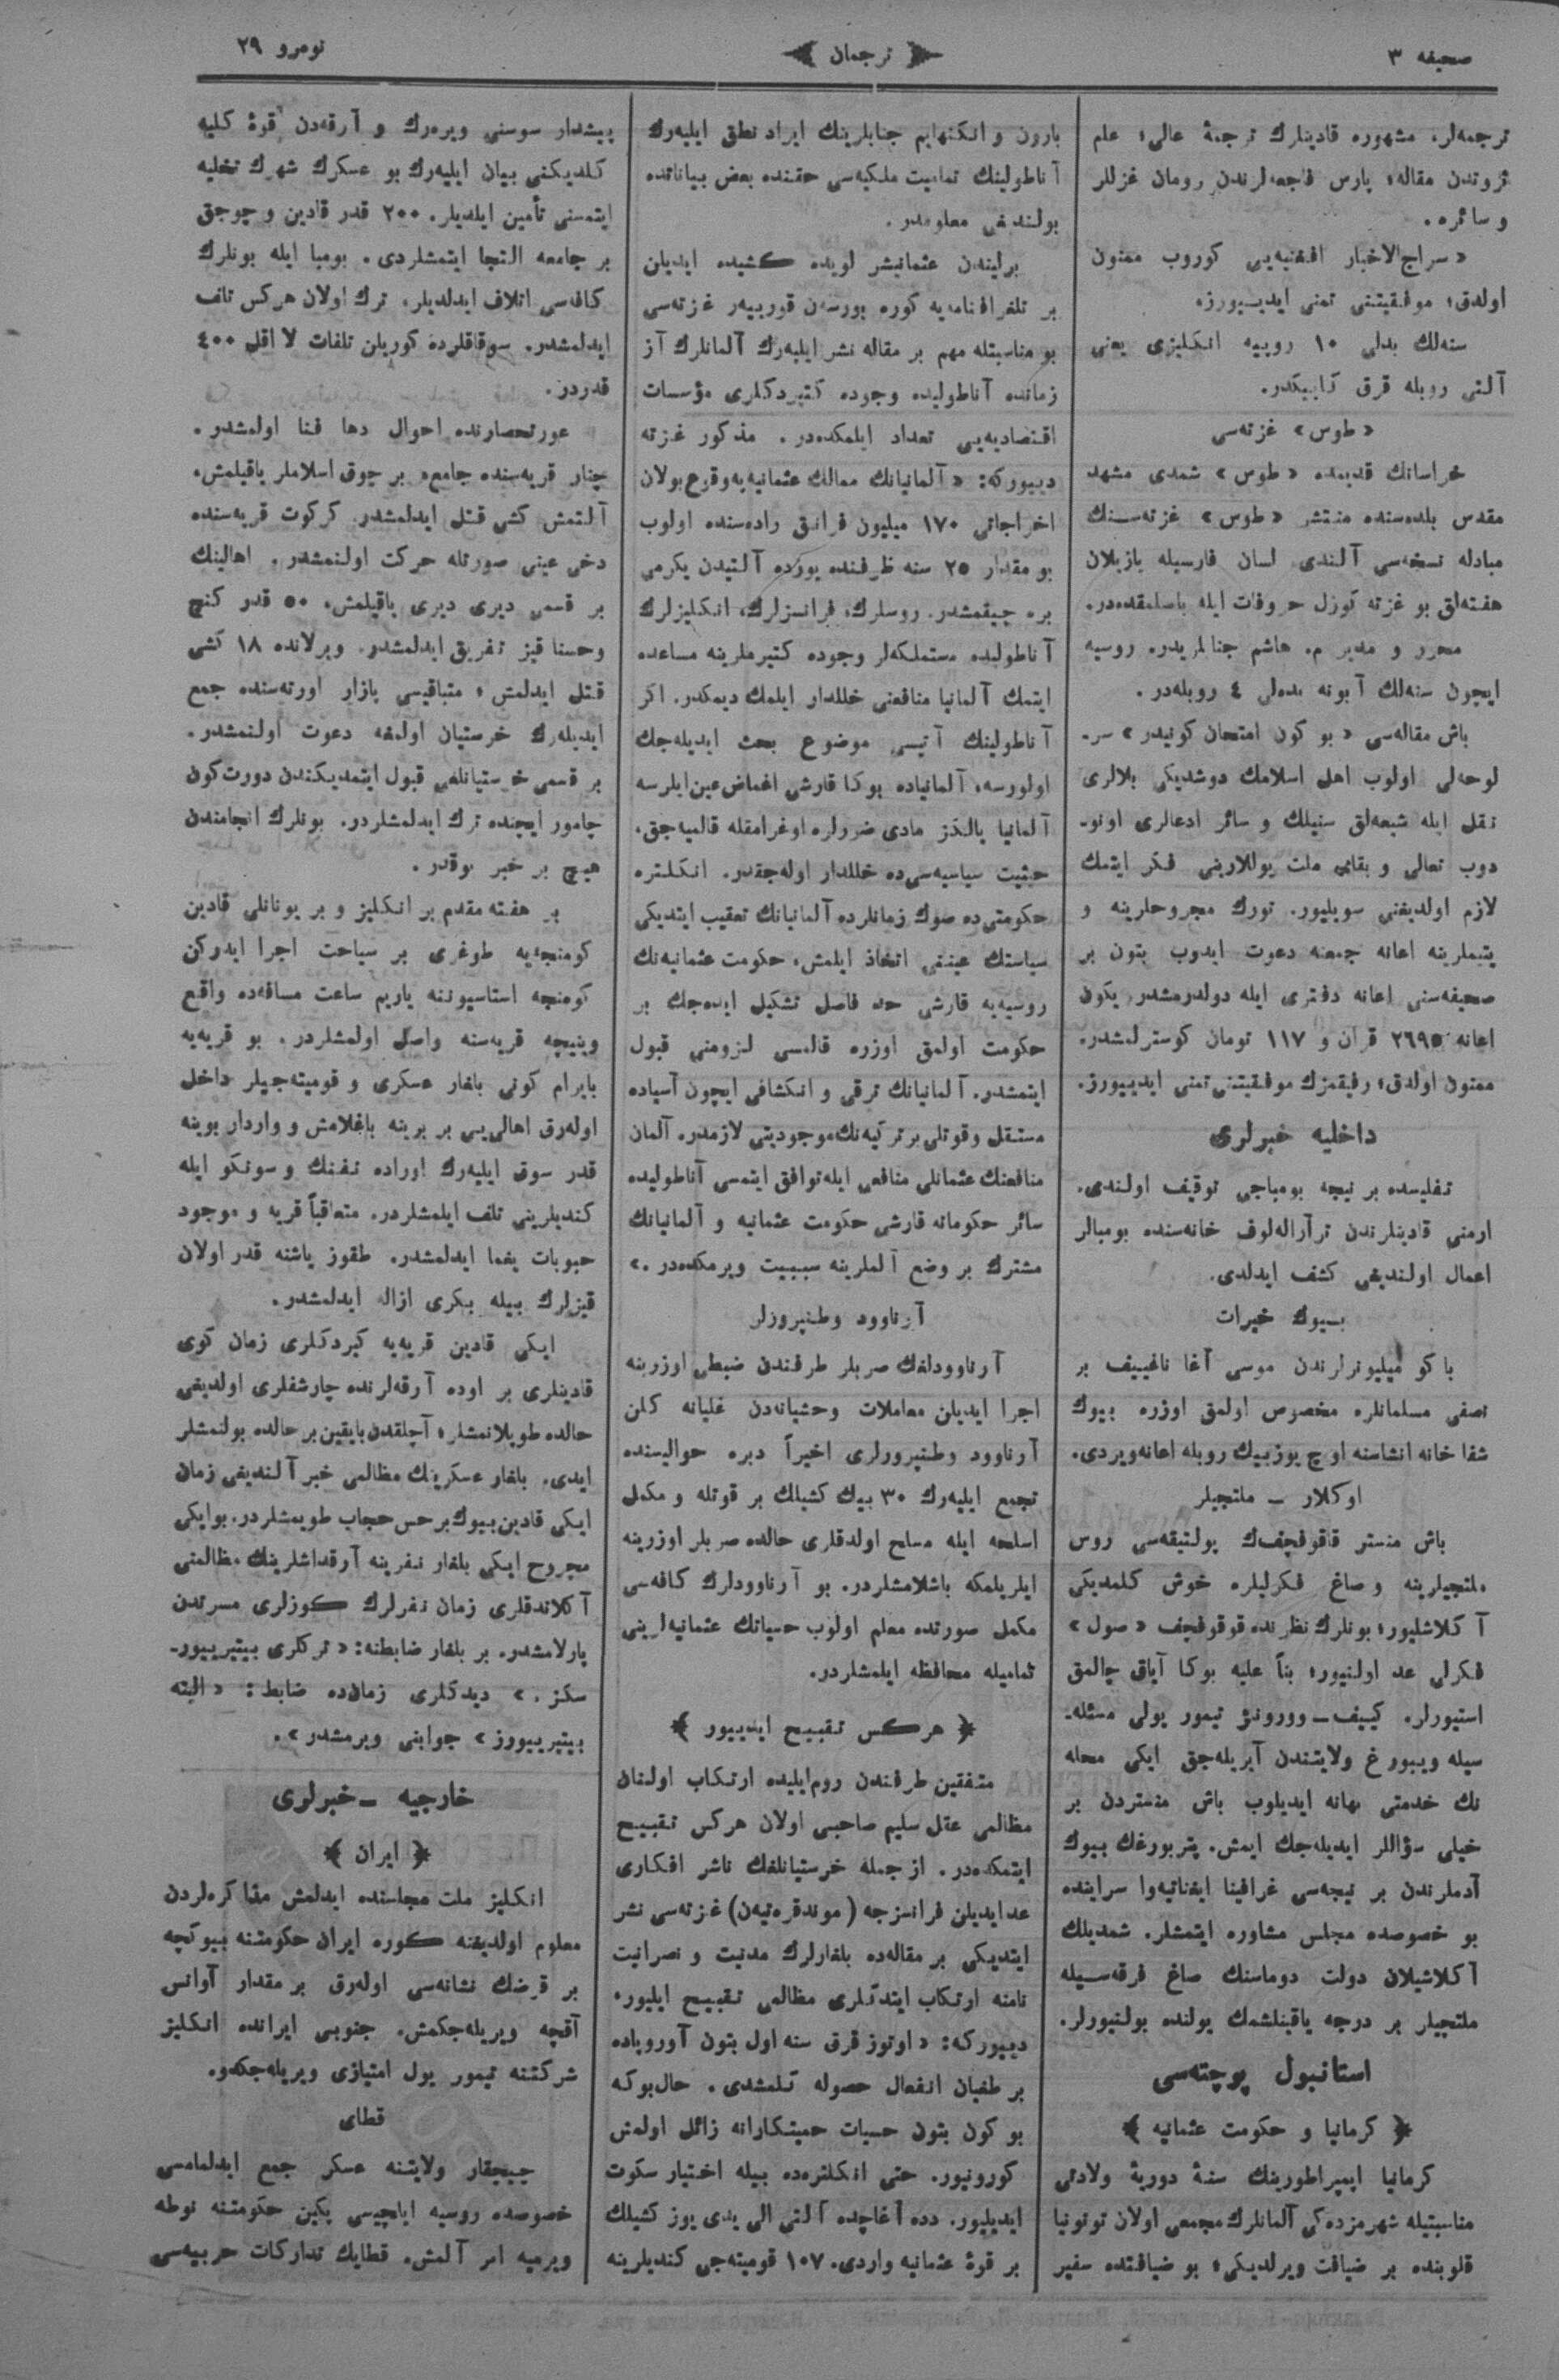 صحیفه ۳
ترجمان
نومرو ۲۹
ترجمه‌لر، مشهوره قادینلرك ترجمهٔ عالی؛ علم
ثروتدن مقاله؛ پارس فاجعه‌لرندن رومان غزللر
و سائره.
«سراج‌الاخبار افغنیه‌یی كوروب ممنون
اولدق؛ موفقیتنی تمنی ایدییورز.
سنه‌لك بدلی ۱۰ روپیه انكلیزی یعنی
آلتی روبله قرق كاپیكدر.
«طوس» غزته‌سی
خراسانك قدیمده «طوس» شمدی مشهد
مقدس بلده‌سنده منتشر «طوس» غزته‌سنك
مبادله نسخه‌سی آلندی. لسان فارسیله یازیلان
هفته‌لق بو غزته كوزل حروفات ایله باصلمقده‌در.
محرر و مدیر م. هاشم جنابلریدر. روسیه
ایچون سنه‌لك آبونه بدهلی ٤ روبله‌در.
باش مقاله‌سی «بو كون امتحان كونیدر» سر-
لوحه‌لی اولوب اهل اسلامك دوشدیكی بلالری
نقل ایله شیعه‌لق سنیلك و سائر ادعالری اونو-
دوب تعالی و بقای ملت یوللارینی فكر ایتمك
لازم اولدیغنی سویلیور. تورك مجروحلرینه و
یتیملرینه اعانه جمعنه دعوت ایدوب بتون بر
صحیفه‌سنی اعانه دفتری ایله دولدرمشدر. یكون
اعانه ۲٦۹٥ قران و ۱۱۷ تومان كوسترلمشدر.
ممنون اولدق؛ رفیقمزك موفقیتنی تمنی ایدییورز.
داخلیه خبرلری
تفلیسده بر نیچه بومباجی توقیف اولندی.
ارمنی قادینلرندن ترآراله‌لوف خانه‌سنده بومبالر
اعمال اولندیغی كشف ایدلدی.
بیوك خیرات
باكو میلیونرلرندن موسی آغا ناغییف بر
نصفی مسلمانلره مخصوص اولمق اوزره بیوك
شفا خانه انشاسنه اوچ یوز بیك روبله اعانه ویردی.
اوكلار – ملتجیلر
باش منستر قاقوفچف‌ك پولتیقه‌سی روس
ملتجیلرینه و صاغ فكرلیلره خوش كلمدیكی
آكلاشلیور؛ بونلرك نظرنده قوقوفچف «صول»
فكرلی عد اولنیور؛ بناً علیه بوكا آیاق چالمق
استیورلر. كییف – وورونژ تیمور یولی مسئله-
سیله ویبورغ ولایتندن آیریله‌جق ایكی محله
نك خدمتی بهانه ایدیلوب باش منستردن بر
خیلی سؤاللر ایدیله‌جك ایمش. پتربورغك بیوك
آدملرندن بر نیچه‌سی غرافینا ایغناتیه‌وا سراینده
بو خصوصده مجلس مشاوره ایتمشلر. شمدیلك
آكلاشیلان دولت دوماسنك صاغ فرقه‌سیله
ملتجیلر بر درجه یاقینلشمك یولنده بولنیورلر.
استانبول پوچته‌سی
﴿ كرمانیا و حكومت عثمانیه ﴾
كرمانیا ایمپراطورینك سنهٔ دوریهٔ ولادتی
مناسبتیله شهرمزده‌كی آلمانلرك مجمعی اولان توتونیا
قلوبنده بر ضیافت ویرلدیكی؛ بو ضیافتده سفیر
بارون و انكنهایم جنابلرینك ایراد نطق ایلیه‌رك
آناطولینك تمامیت ملكیه‌سی حقنده بعض بیاناتده
بولندیغی معلومدر.
برلیندن عثمانیشر لویده كشیده ایدیلن
بر تلغرافنامه‌یه كوره بورسه‌ن قوریه‌ر غزته‌سی
بو مناسبتله مهم بر مقاله نشر ایلیه‌رك آلمانلرك آز
زمانده آناطولیده وجوده كتیردكلری مؤسسات
اقتصادیه‌یی تعداد ایلمكده‌در. مذكور غزته
دییوركه: «آلمانیانك ممالك عثمانیه‌یه وقوع بولان
اخراجاتی ۱۷۰ میلیون فرانق راده‌سنده اولوب
بو مقدار ۲٥ سنه ظرفنده یوزده آلتیدن یكرمی
بره چیقمشدر. روسلرك، فرانسزلرك، انكلیزلرك
آناطولیده مستملكه‌لر وجوده كتیرملرینه مساعده
ایتمك آلمانیا منافعنی خللدار ایلمك دیمكدر. اكر
آناطولینك آتیسی موضوع بحث ایدیله‌جك
اولورسه، آلمانیاده بوكا قارشی اغماض عین ایلرسه
آلمانیا یالكز مادی ضررلره اوغرامقله قالمیه‌جق،
حیثیت سیاسیه‌سی‌ده خللدار اوله‌جقدر. انكلتره
حكومتی‌ده صوك زمانلرده آلمانیانك تعقیب ایتدیكی
سیاستك عینی اتخاذ ایلمش، حكومت عثمانیه‌نك
روسیه‌یه قارشی حد فاصل تشكیل ایده‌جك بر
حكومت اولمق اوزره قالمسی لزومنی قبول
ایتمشدر. آلمانیانك ترقی و انكشافی ایچون آسیاده
مستقل وقوتلی بر تركیه‌نك موجودیتی لازمدر. آلمان
منافعنك عثمانلی منافعی ایله توافق ایتمسی آناطولیده
سائر حكوماته قارشی حكومت عثمانیه و آلمانیانك
مشترك بر وضع آلملرینه سببیت ویرمكده‌در.»
آرناوود وطنپرورلر
آرناوودلغك صربلر طرفندن ضبطی اوزرینه
اجرا ایدیلن معاملات وحشیانه‌دن غلیانه كلن
آرناوود وطنپرورلری اخیراً دبره حوالیسنده
تجمع ایلیه‌رك ۳۰ بیك كشیلك بر قوتله و مكمل
اسلحه ایله مسلح اولدقلری حالده صربلر اوزرینه
ایلریلمكه باشلامشلردر. بو آرناوودلرك كافه‌سی
مكمل صورتده معلم اولوب حسیاتك عثمانیه‌لرینی
تمامیله محافظه ایلمشلردر.
﴿ هركس تقبیح ایدییور ﴾
متفقین طرفندن روم‌ایلیده ارتكاب اولنان
مظالمی عقل سلیم صاحبی اولان هركس تقبیح
ایتمكده‌در. از جمله خرستیانلغك ناشر افكاری
عد ایدیلن فرانسزجه (موندقره‌تیه‌ن) غزته‌سی نشر
ایتدیكی بر مقاله‌ده بلغارلرك مدنیت و نصرانیت
نامنه ارتكاب ایتدكلری مظالمی تقبیح ایلیور.
دییوركه: «اوتوز قرق سنه اول بتون آوروپاده
بر طغیان انفعال حصوله كلمشدی. حال‌بوكه
بو كون بتون حسیات حمیتكارانه زائل اولمش
كورونیور. حتی انكلتره‌ده بیله اختیار سكوت
ایدیلیور. دده آغاچده آلتی الی یدی یوز كشیلك
بر قوهٔ عثمانیه واردی. ۱۰۷ قومیته‌جی كندیلرینه
پیشدار سوسنی ویره‌رك و آرقه‌دن قوهٔ كلیه
كلدیكنی بیان ایلیه‌رك بو عسكرك شهرك تخلیه
ایتمسنی تأمین ایلدیلر. ۲۰۰ قدر قادین و چوجق
بر جامعه التجا ایتمشلردی. بومبا ایله بونلرك
كافه‌سی اتلاف ایدلدیلر، ترك اولان هركس تلف
ایدلمشدر. سوقاقلرده كوریلن تلفات لا اقل ٤۰۰
قدردر.
عورتحصارنده احوال دها فنا اولمشدر.
چنار قریه‌سنده جامع، بر چوق اسلاملر یاقیلمش،
آلتمش كشی قتل ایدلمشدر. كركوت قریه‌سنده
دخی عینی صورتله حركت اولنمشدر. اهالینك
بر قسمی دیری دیری یاقیلمش، ٥۰ قدر كنج
وحسنا قیز تفریق ایدلمشدر. ویرلانده ۱۸ كشی
قتل ایدلمش، متباقیسی پازار اورته‌سنده جمع
ایدیله‌رك خرستیان اولمغه دعوت اولنمشدر.
بر قسمی خرستیانلغی قبول ایتمدیكندن دورت كون
چامور ایچنده ترك ایدلمشلردر. بونلرك انجامندن
هیچ بر خبر یوقدر.
بر هفته مقدم بر انكلیز و بر یونانلی قادین
كومنجه‌یه طوغری بر سیاحت اجرا ایدركن
كومنچه استاسیوننه یاریم ساعت مسافه‌ده واقع
وینیچه قریه‌سنه واصل اولمشلردر. بو قریه‌یه
بایرام كونی بلغار عسكری و قومیته‌جیلر داخل
اوله‌رق اهالی‌یی بر برینه باغلامش و واردار بوینه
قدر سوق ایلیه‌رك اوراده تفنك و سونكو ایله
كندیلرینی تلف ایلمشلردر. متعاقباً قریه و موجود
حبوبات یغما ایدلمشدر. طقوز یاشنه قدر اولان
قیزلرك بیله بكری ازاله ایدلمشدر.
ایكی قادین قریه‌یه كیردكلری زمان كوی
قادینلری بر اوده آرقه‌لرنده چارشفلری اولدیغی
حالده طوپلانمشلر؛ آچلقدن بایقین بر حالده بولنمشلر
ایدی. بلغار عسكرینك مظالمی خبر آلندیغی زمان
ایكی قادین بیوك بر حس حجاب طویمشلردر. بو ایكی
مجروح ایكی بلغار نفرینه آرقداشلرینك مظالمنی
آكلاتدقلری زمان نفرلرك كوزلری مسرتدن
پارلامشدر. بر بلغار ضابطنه: «تركلری بیتیرییور-
سكز.» دیدكلری زمان‌ده ضابط: «البته
بیتیرییورز» جوابنی ویرمشدر».
خارجیه – خبرلری
﴿ ایران ﴾
انكلیز ملت مجلسنده ایدلمش مذاكره‌لردن
معلوم اولدیغنه كوره ایران حكومتنه بیوكچه
بر قرضك نشانه‌سی اوله‌رق بر مقدار آوانس
آقچه ویریله‌جكمش. جنوبی ایرانده انكلیز
شركتنه تیمور یول امتیازی ویریله‌جكدو.
قطای
جیجیقار ولایتنه عسكر جمع ایدلمامسی
خصوصده روسیه ایلچیسی پكین حكومتنه نوطه
ویرمیه امر آلمش. قطایك تداركات حربیه‌سی